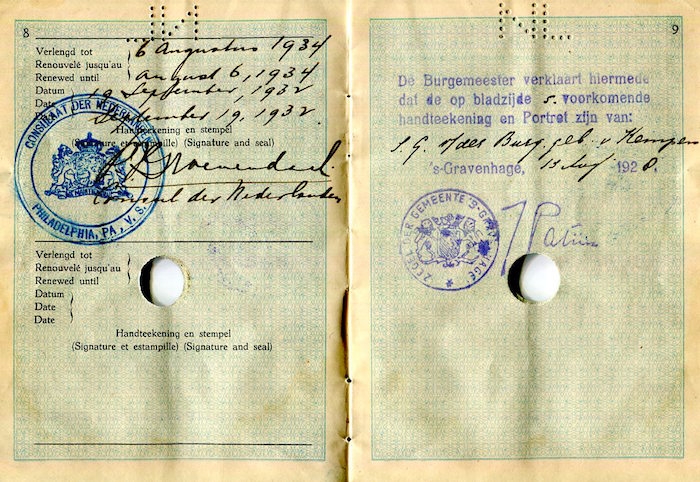 8
Verlengd tot
Renouvelé jusqu'au
Renewed until
Datum
Date
Date
6 Augustus 1934
August 6, 1934
19 September, 1932
September 19, 1932
Handteekening en stempel
(Signature et estampille) (Signature and seal)
Consul der Nederlanden
CONSULAAT DER NEDERLANDEN
PHILADELPHIA, PA., V. S.
Verlengd tot
Renouvelé jusqu'au
Renewed until
Datum
Date
Date
Handteekening en stempel
(Signature et estampille) (Signature and seal)
9
De Burgemeester verklaart hiermede
dat de op bladzijde 5. voorkomende
handteekening en Portret zijn van:
S. G. v/des Burg, geb. v. Kempen
's-Gravenhage, 13 Aug 1928.
ZEGEL DER GEMEENTE 'S-GRAVENHAGE